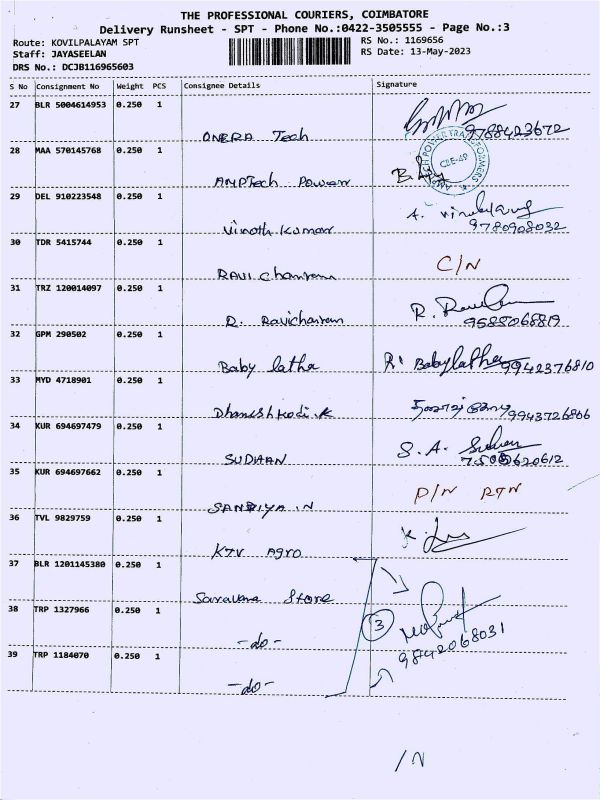 THE PROFESSIONAL COURIERS, COIMBATORE
Delivery Runsheet - SPT - Phone No.:0422-3505555 - Page No.:3
Route: KOVILPALAYAM SPT
Staff: JAYASEELAN
DRS No.: DCJB116965603
RS No.: 1169656
RS Date: 13-May-2023
S No Consignment No Weight PCS Consignee Details Signature
27 BLR 5004614953 0.250 1
ONERA Tech 9788423672
28 MAA 570145768 0.250 1
AMPTech Power B.
POWER TRANSFORMERS
CBE-49
29 DEL 910223548 0.250 1
Vinoth Kumar A.
9780908032
30 TDR 5415744 0.250 1
RAVI C/N
31 TRZ 120014097 0.250 1
R. R.
9585068819
32 GPM 290502 0.250 1
Baby latha R. Babylatha 9942376810
33 MYD 4718901 0.250 1
Dhaneshkodi.K 9943726866
34 KUR 694697479 0.250 1
SUDHAN S.A.
35 KUR 694697662 0.250 1
SANDIYA.N P/N RTN
36 TVL 9829759 0.250 1
KTV Agro K.
37 BLR 1201145380 0.250 1
Saravana Store
38 TRP 1327966 0.250 1
-do- 3
9842068031
39 TRP 1184070 0.250 1
-do-
/N